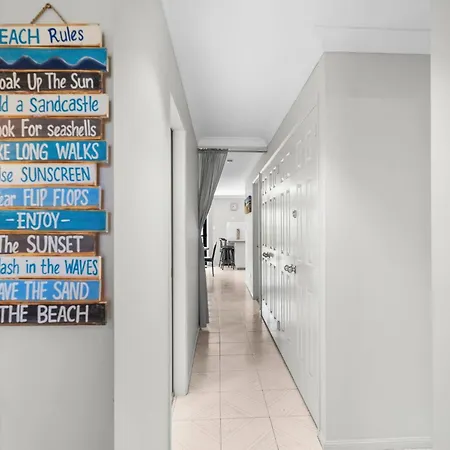 EACH Rules
oak Up The Sun
ld a Sandcastle
ook For seashells
KE LONG WALKS
se SUNSCREEN
ear FLIP FLOPS
-ENJOY-
The SUNSET
lash in the WAVES
AVE THE SAND
THE BEACH